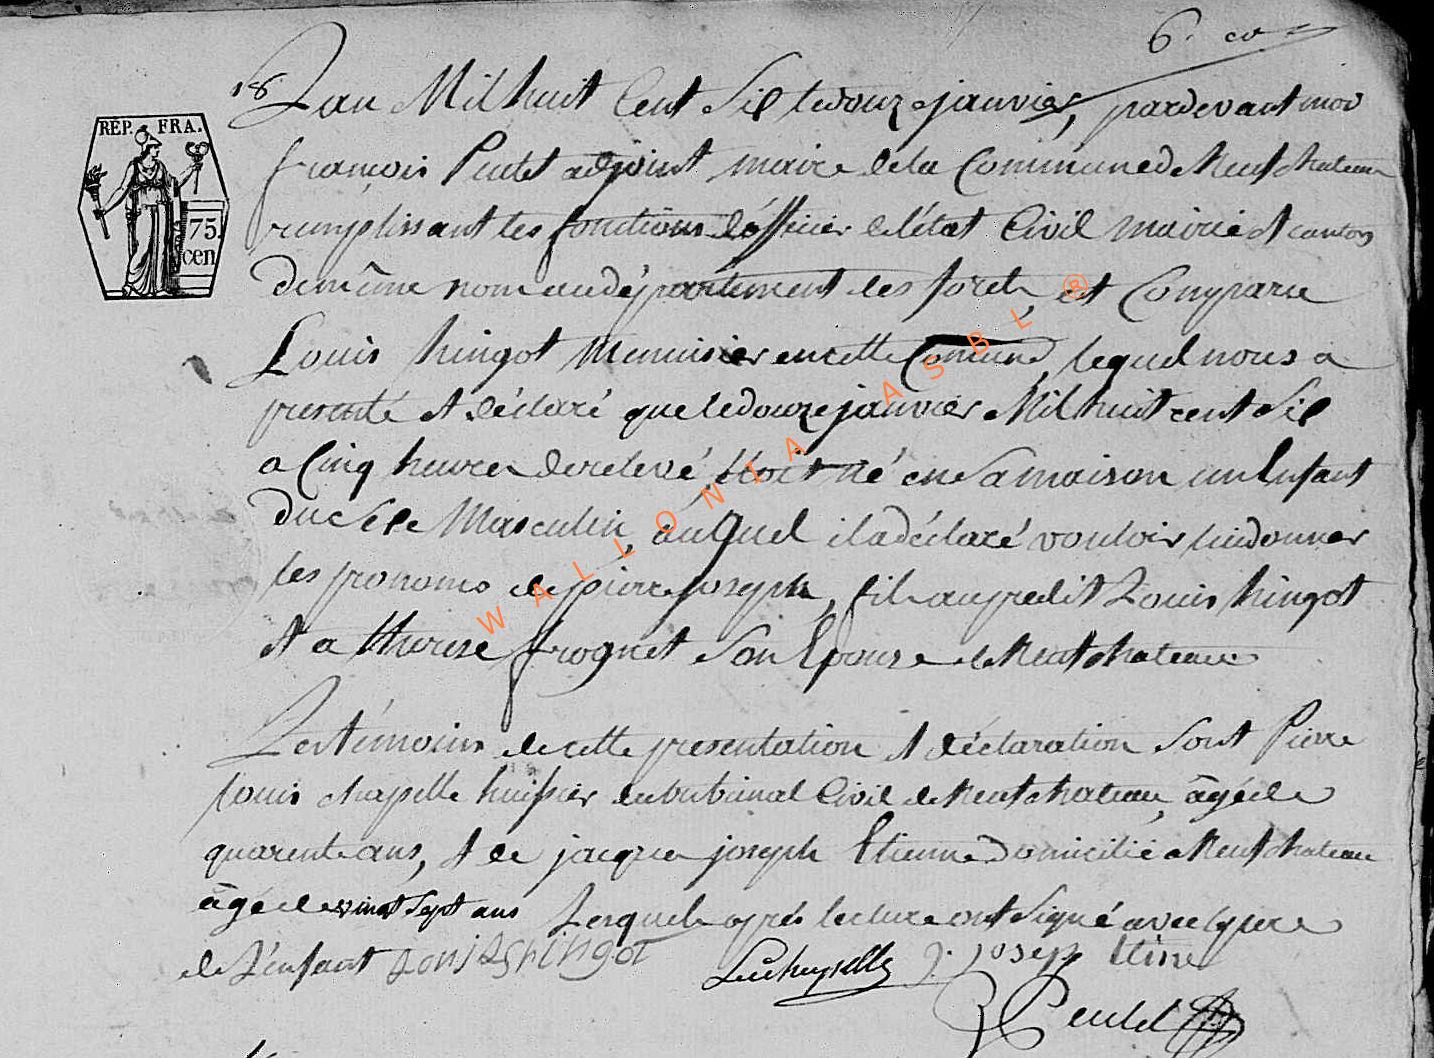 6.
18.
L'an Mil huit Cent Six le douze janvier, pardevant moi
françois Pentel adjoint maire de la Commune de Neufchateau
remplissant les fonctions d'officier de l'état Civil mairie et canton
de même nom au département des forets, est Comparu
Louis hingot Menuisier en cette Comune, lequel nous a
presenté et déclaré que le douze janvier Mil huit cent Six
a Cinq heures de relevé, étoit né en sa maison un Enfant
du sexe Masculin, auquel il a déclaré vouloir lui donner
les pronoms de pierre joseph, fils au predit Louis hingot
et a therese frognet son Epouse de Neufchateau
Les témoins de cette presentation et déclaration sont Pierre
Louis chapelle huissier du tribunal Civil de Neufchateau, âgé de
quarente ans, et de jacque joseph Etienne domicilié a Neufchateau
âgé de vingt sept ans Lesquels après lecture ont signé avec le pere
de l'enfant Louis hingot
j. joseph Etine
Pentel
REP. FRA.
75.
cen
WALLONIA ASBL ®